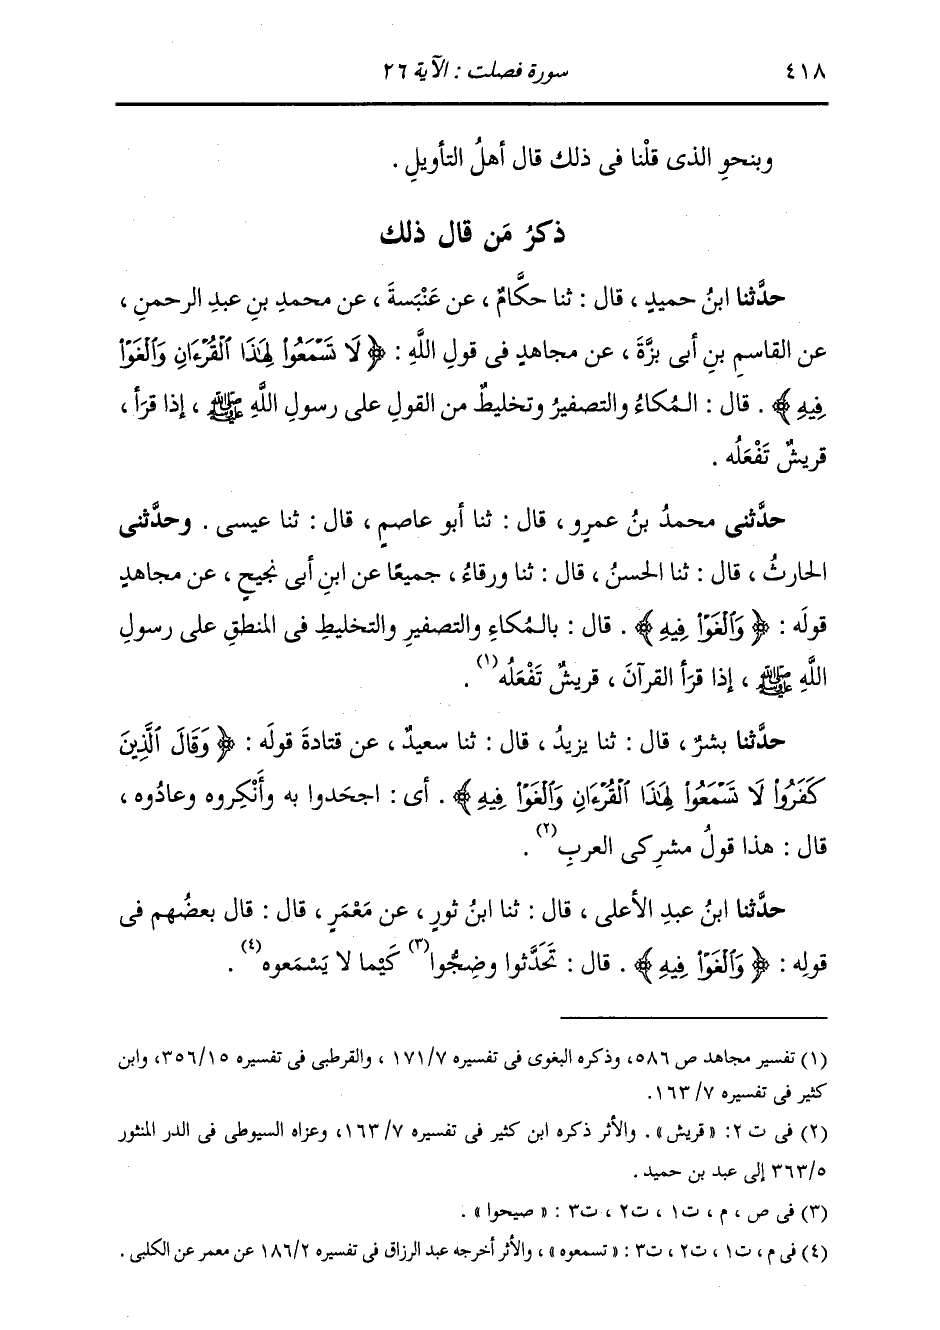 ٤١٨ سورة فصلت : الآية ٢٦
وبنحوِ الذى قلْنا فى ذلك قال أهلُ التأويلِ .
ذكرُ مَن قال ذلك
حدَّثنا ابنُ حميدٍ ، قال : ثنا حكَّامٌ ، عن عَنْبَسةَ ، عن محمدِ بنِ عبدِ الرحمنِ ،
عن القاسمِ بنِ أبى بزَّةَ ، عن مجاهدٍ فى قولِ اللَّهِ : ﴿ لَا تَسْمَعُوا۟ لِهَٰذَا ٱلْقُرْءَانِ وَٱلْغَوْا۟
فِيهِ ﴾ . قال : المُكاءُ والتصفيرُ وتخليطٌ من القولِ على رسولِ اللَّهِ ﷺ ، إذا قرَأ ،
قريشٌ تَفْعَلُه .
حدَّثنى محمدُ بنُ عمرٍو ، قال : ثنا أبو عاصمٍ ، قال : ثنا عيسى . وحدَّثنى
الحارثُ ، قال : ثنا الحسنُ ، قال : ثنا ورقاءُ ، جميعًا عن ابنِ أبى نجيحٍ ، عن مجاهدٍ
قولَه : ﴿ وَٱلْغَوْا۟ فِيهِ ﴾ . قال : بالمُكاءِ والتصفيرِ والتخليطِ فى المنطقِ على رسولِ
اللَّهِ ﷺ ، إذا قرَأ القرآنَ ، قريشٌ تَفْعَلُه(١) .
حدَّثنا بشرٌ ، قال : ثنا يزيدُ ، قال : ثنا سعيدٌ ، عن قتادةَ قولَه : ﴿ وَقَالَ ٱلَّذِينَ
كَفَرُوا۟ لَا تَسْمَعُوا۟ لِهَٰذَا ٱلْقُرْءَانِ وَٱلْغَوْا۟ فِيهِ ﴾ . أى : اجحَدوا به وأَنْكِروه وعادُوه ،
قال : هذا قولُ مشرِكى العربِ(٢) .
حدَّثنا ابنُ عبدِ الأعلى ، قال : ثنا ابنُ ثورٍ ، عن مَعْمَرٍ ، قال : قال بعضُهم فى
قولِه : ﴿ وَٱلْغَوْا۟ فِيهِ ﴾ . قال : تَحَدَّثوا وضِجُّوا(٣) كَيْما لا يَسْمَعوه(٤) .
(١) تفسير مجاهد ص ٥٨٦، وذكره البغوى فى تفسيره ١٧١/٧ ، والقرطبى فى تفسيره ٣٥٦/١٥، وابن
كثير فى تفسيره ١٦٣/٧.
(٢) فى ت ٢: « قريش» . والأثر ذكره ابن كثير فى تفسيره ١٦٣/٧، وعزاه السيوطى فى الدر المنثور
٣٦٣/٥ إلى عبد بن حميد .
(٣) فى ص ، م ، ت١ ، ت٢ ، ت٣ : « صيحوا » .
(٤) فى م ، ت١ ، ت٢ ، ت٣ : « تسمعوه » ، والأثر أخرجه عبد الرزاق فى تفسيره ١٨٦/٢ عن معمر عن الكلبى .